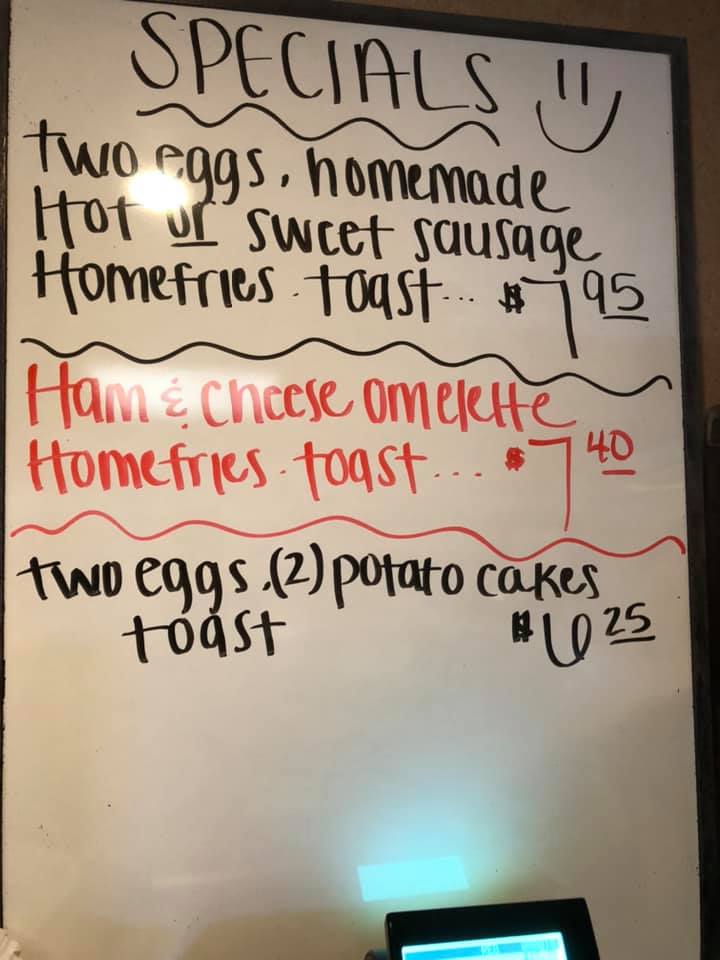 SPECIALS
two eggs, homemade
Hot or sweet sausage
Homefries. toast... $7 95
Ham & cheese omelette
Homefries. toast... $7 40
two eggs, (2) potato cakes
toast $6 25